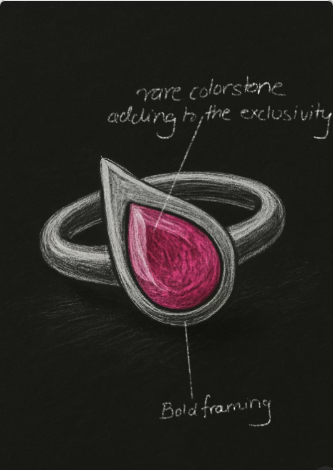 rare colorstone
adding to the exclusivity
Bold framing